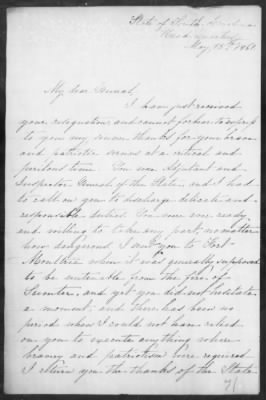 State of South Carolina
Head Quarters
May 15th 1861
My dear General,
I have just received
your resignation, and cannot forbear to express
to you my sincere thanks for your brave
and patriotic services at a critical and
perilous time. You were Adjutant and
Inspector General of the State, and I had
to call on you to discharge delicate and
responsible duties. You were ever ready
and willing to take any part, no matter
how dangerous. I sent you to Fort
Moultrie when it was generally supposed
to be untenable from the fire of Fort
Sumter, and yet you did not hesitate
a moment; and there has been no
period when I could not have relied
on you to execute anything where
bravery and patriotism were required.
I return you the thanks of the State